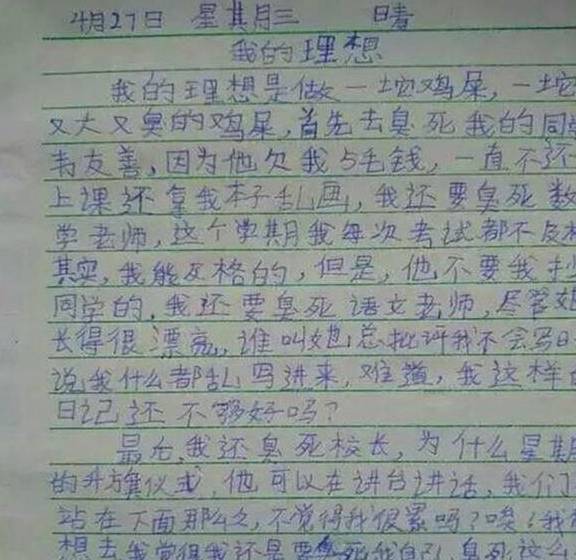 4月27日 星其月三 晴
我的理想
我的理想是做一坨鸡屎，一坨
又大又臭的鸡屎，首先去臭死我的同
韦友善，因为他欠我5毛钱，一直不还
上课还拿我本子乱画，我还要臭死数
学老师，这个学期我每次考试都不及
其实，我能及格的，但是，他不要我
同学的，我还要臭死语文老师，尽管
长得很漂亮，谁叫她总批评我不会写日
说我什么都乱写进来，难道，我这样
日记还不够好吗？
最后，我还臭死校长，为什么星期
的升旗仪式，他可以在讲台讲话，我们
站在下面那么久，不觉得我很累吗？唉！我
想去我觉得我还是要臭死我自己，臭死这么